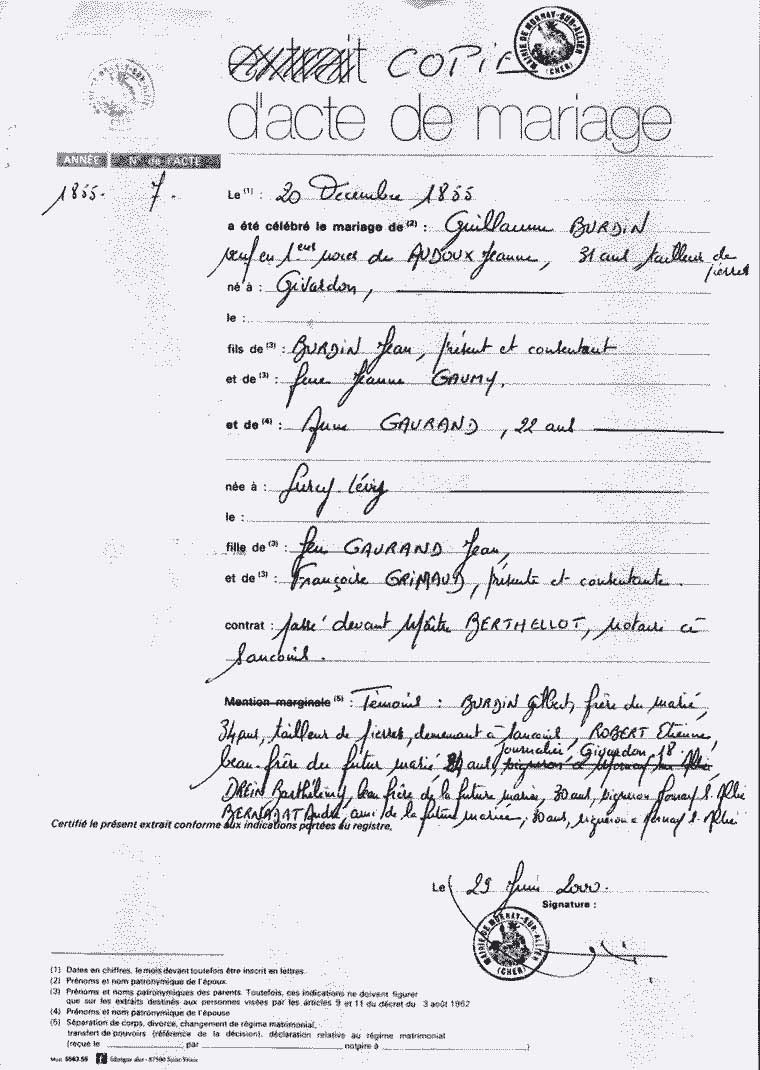 extrait COPIE
MAIRIE DE MORNAY-SUR-ALLIER (CHER)
d'acte de mariage
ANNÉE N° de l'ACTE
1855. 7.
Le (1) : 20 Decembre 1855
a été célébré le mariage de (2) : Guillaume BURDIN
veuf en 1eres noces de AUDOUX Jeanne, 31 ans tailleur de
pierres
né à : Givardon,
le :
fils de (3) : BURDIN Jean, présent et consentant
et de (3) : feue Jeanne GAUMY.
et de (4) : Anne GAURAND, 22 ans
née à : Lurcy Lévy
le :
fille de (3) : feu GAURAND Jean,
et de (3) : Françoise GRIMAUD, présente et consentante.
contrat : passé devant Maître BERTHELLOT, notaire à
Sancoins.
Mention marginale (5) : Témoins : BURDIN Gilbert, frère du marié,
34 ans, tailleur de pierres, demeurant à Sancoins, ROBERT Etienne,
journalier, Givardon 18.
beau-frère du futur marié ans, vigneron à Mornay sur Allier
DREIN Barthélémy, beau frère de la future mariée, 30 ans, vigneron Mornay s. Allier
BERNADAT André, ami de la future mariée, 30 ans, vigneron à Mornay s. Allier
Certifié le présent extrait conforme aux indications portées au registre.
Le 29 Juin 2000.
Signature :
MAIRIE DE MORNAY-SUR-ALLIER (CHER)
(1) Dates en chiffres, le mois devant toutefois être inscrit en lettres.
(2) Prénoms et nom patronymique de l'époux.
(3) Prénoms et noms patronymiques des parents. Toutefois, ces indications ne doivent figurer
que sur les extraits destinés aux personnes visées par les articles 9 et 11 du décret du 3 août 1962
(4) Prénoms et nom patronymique de l'épouse
(5) Séparation de corps, divorce, changement de régime matrimonial,
transfert de pouvoirs (référence de la décision), déclaration relative au régime matrimonial
(reçue le , par , notaire à )
Mod. 5563.55 fabrègue alier - 87500 Saint-Yrieix